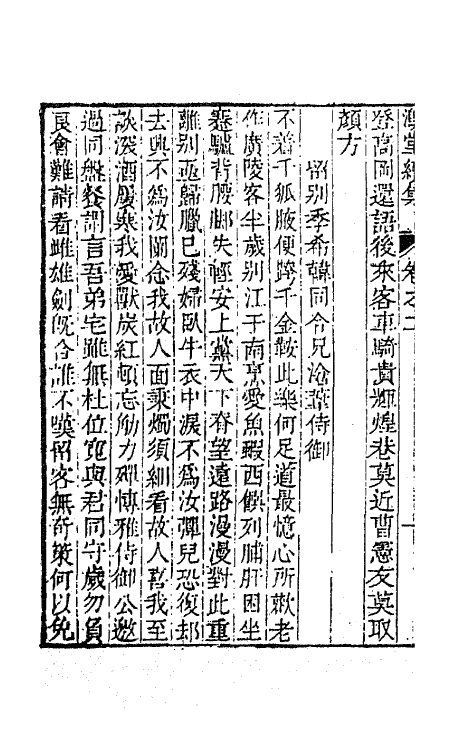 登高岡還語後來客車騎貴輝煌巷莫近曹憲友莫取
顏方
留別季希韓同令兄滄蕋侍御
不着千狐腋便跨千金鞍此樂何足道最憶心所歡老
作廣陵客半歲別江干南烹愛魚蝦西饌列脯肝困坐
蹇驢背腰脚失輕安上黨天下脊望遠路漫漫對此重
離別亟歸臘已殘婦臥牛衣中淚不為汝彈兒恐復却
去興不為汝闌念我故人面秉燭須細看故人喜我至
談深酒屢乘我愛獸炭紅頓忘觔力殫博雅侍御公邀
過同盤餐謂言吾弟宅雖無杜位寬與君同守歲勿負
良會難請看雌雄劍既合誰不嘆留客無奇策何以免